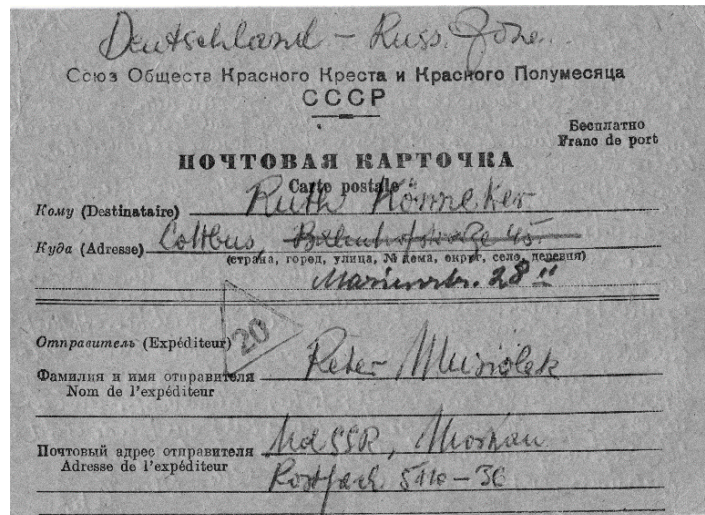 Deutschland – Russ. Zone.
Союз Обществ Красного Креста и Красного Полумесяца
СССР
Бесплатно
Franc de port
ПОЧТОВАЯ КАРТОЧКА
Carte postale
Кому (Destinataire) Ruth Könneker
Куда (Adresse) Cottbus, Bahnhofstraße 45
(страна, город, улица, № дома, округ, село, деревня)
Marienstr. 28 II
20
Отправитель (Expéditeur)
Фамилия и имя отправителя Peter Musiolek
Nom de l'expéditeur
Почтовый адрес отправителя UdSSR, Moskau
Adresse de l'expéditeur Postfach 5110–36